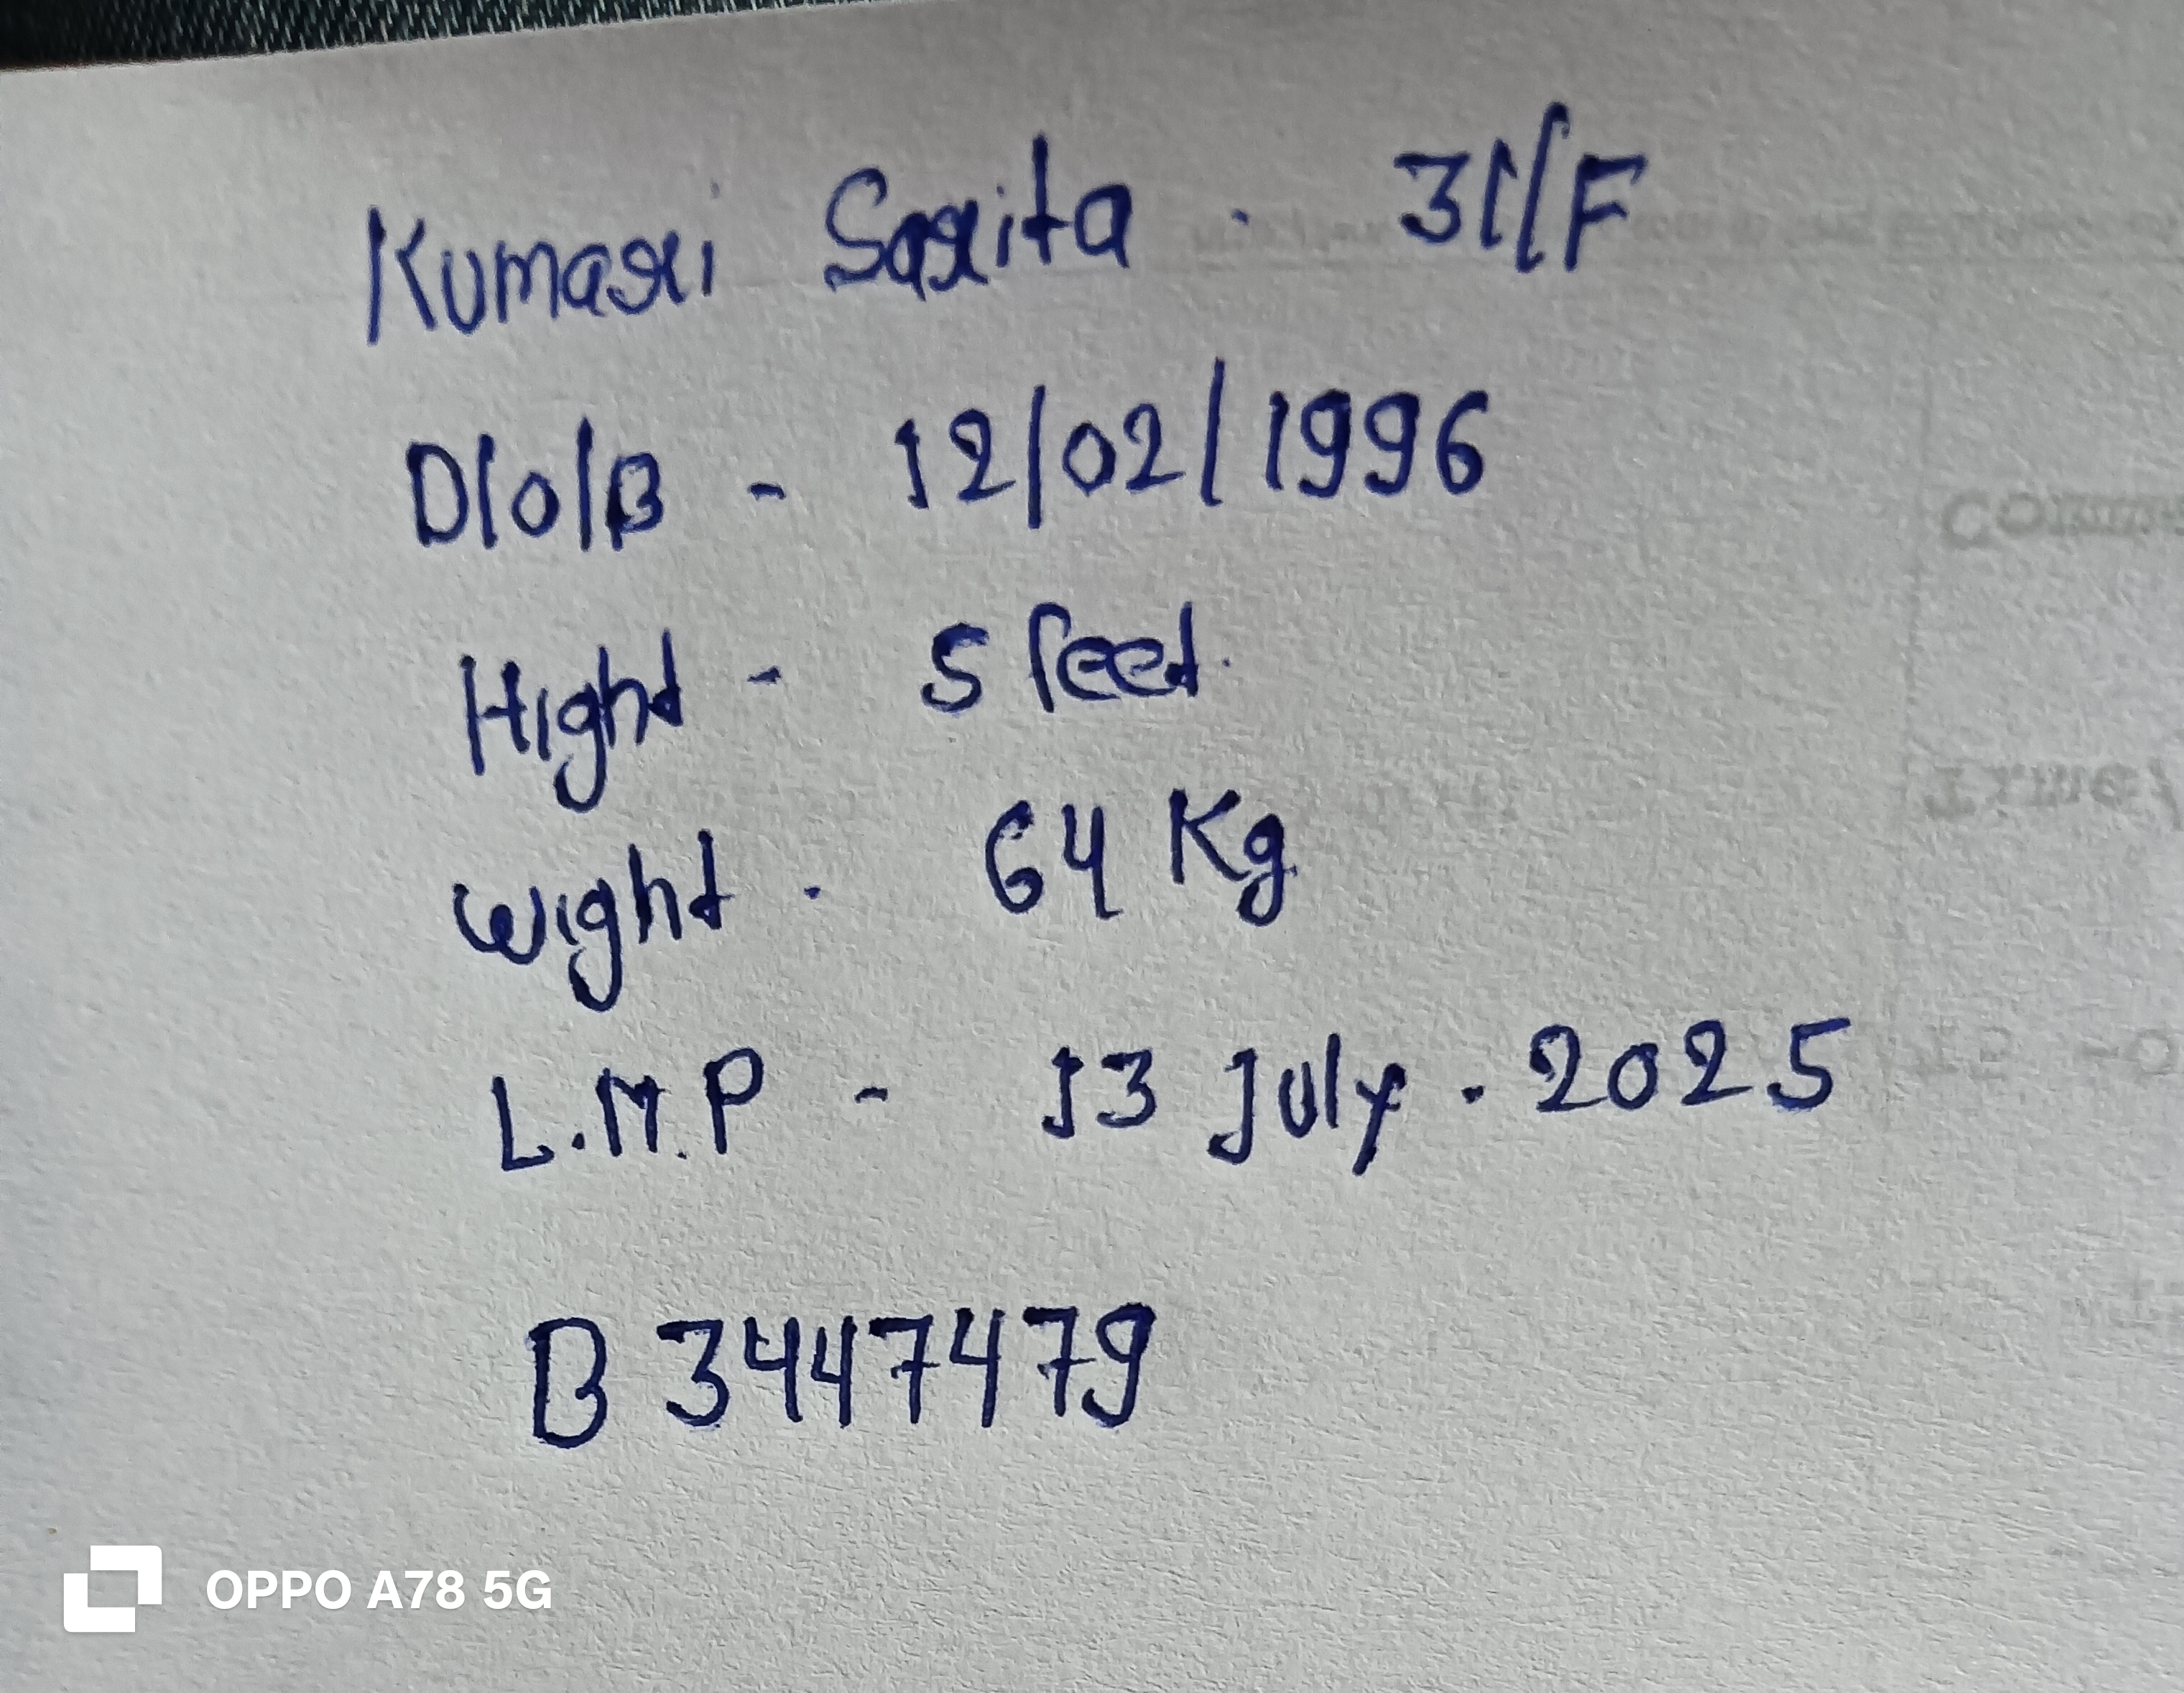 Kumari Sarita . 31/F
D/o/B - 12/02/1996
Hight - 5 feet.
Wight . 64 Kg
L.M.P - 13 July . 2025
B 3447479
OPPO A78 5G